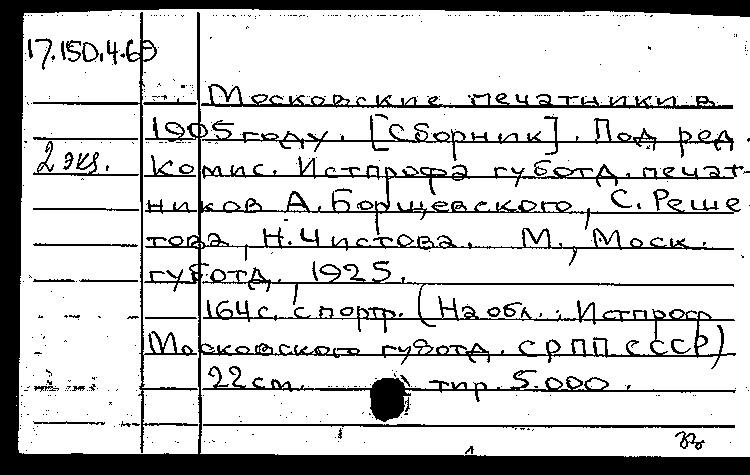 17.150.4.69
Московские печатники в
1905 году. [Сборник]. Под ред.
2 экз.
Комис. Истпрофа губотд. печат-
ников А. Борщевского, С. Реше-
това, Н. Чистова. М., Моск.
губотд., 1925.
164 с. с портр. (На обл.: Истпроф
Московского губотд. СРПП СССР)
22 см. тир. 5.000.